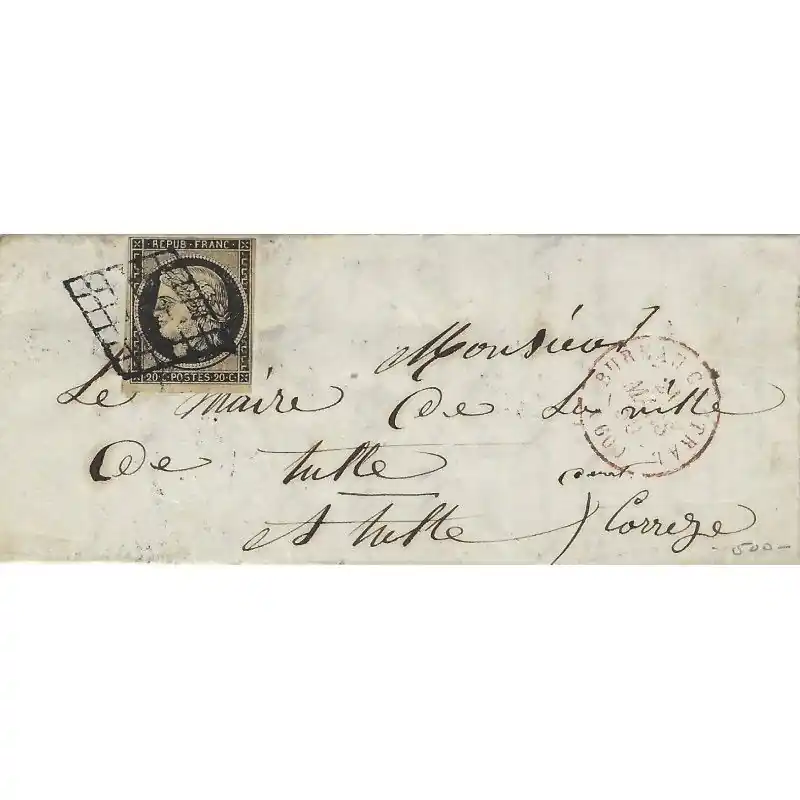 REPUB · FRANC ·
20 · C · POSTES · 20 · C ·
Monsieur
Le Maire De La ville
De tulle
A tulle Correze
BUREAU CENTRAL (60)
500 -